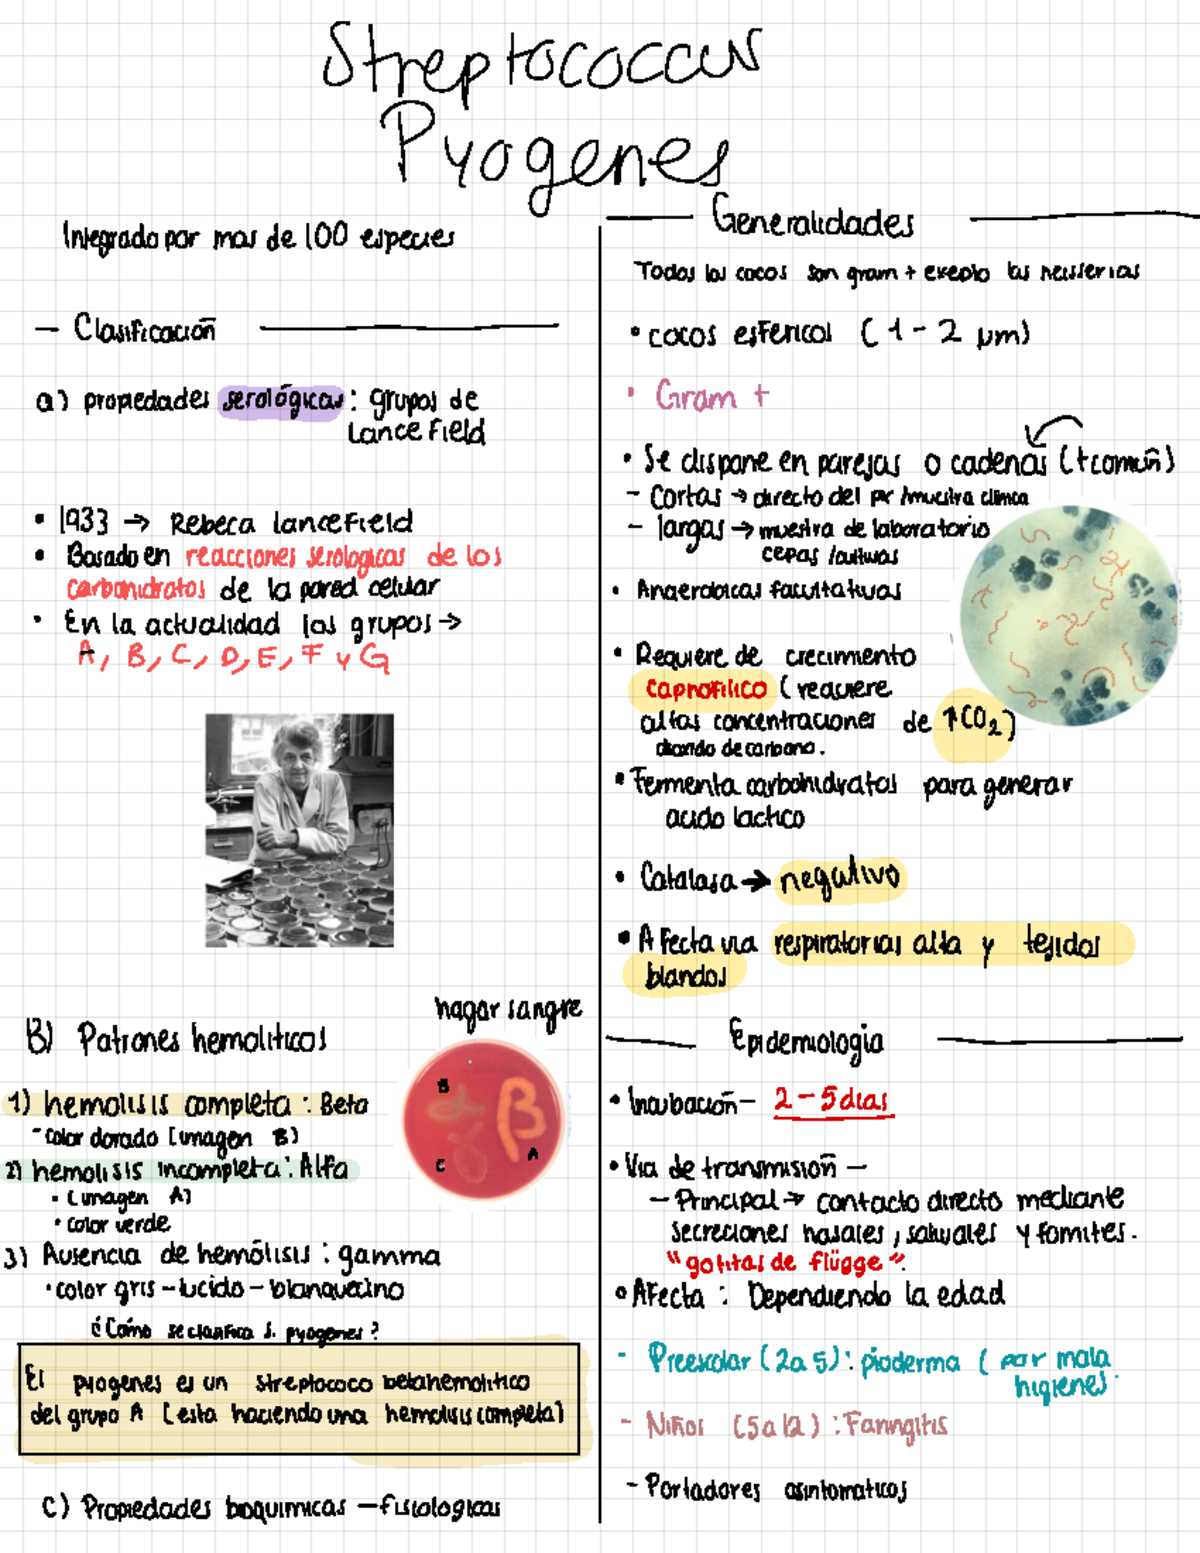 Streptococcus
Pyogenes
Integrado por mas de 100 especies
— Clasificación
a) propiedades serológicas: grupos de
Lancefield
• 1933 → Rebeca Lancefield
• Basado en reacciones serologicas de los
carbohidratos de la pared celular
• En la actualidad los grupos →
A, B, C, D, E, F y G
B) Patrones hemoliticos
hagar sangre
B
β
A
C
1) hemolisis completa: Beta
- color dorado (imagen B)
2) hemolisis incompleta: Alfa
• (imagen A)
• color verde
3) Ausencia de hemólisis: gamma
• color gris - lucido - blanquecino
¿Cómo se clasifica S. pyogenes?
El pyogenes es un streptococo betahemolitico
del grupo A (esta haciendo una hemolisis completa)
C) Propiedades bioquimicas - fisiologicas
Generalidades
Todos los cocos son gram + exepto las neisserias
• cocos esfericos (1 - 2 µm)
• Gram +
• Se dispone en parejas o cadenas (+ común)
- Cortas → directo del px /muestra clinica
- largas → muestra de laboratorio
cepas /cultivos
• Anaerobicas facultativas
• Requiere de crecimiento
capnofilico (requiere
altas concentraciones de ↑CO2)
dioxido de carbono.
• Fermenta carbohidratos para generar
acido lactico
• Catalasa → negativo
• Afecta via respiratorias alta y tejidos
blandos
Epidemiologia
• Incubación - 2 - 5 dias
• Via de transmisión -
- Principal → contacto directo mediante
secreciones nasales, salivales y fomites.
"gotitas de flügge".
• Afecta: Dependiendo la edad
- Preescolar (2 a 5): pioderma (por mala
higiene)
- Niños (5 a 12): Faringitis
- Portadores asintomaticos